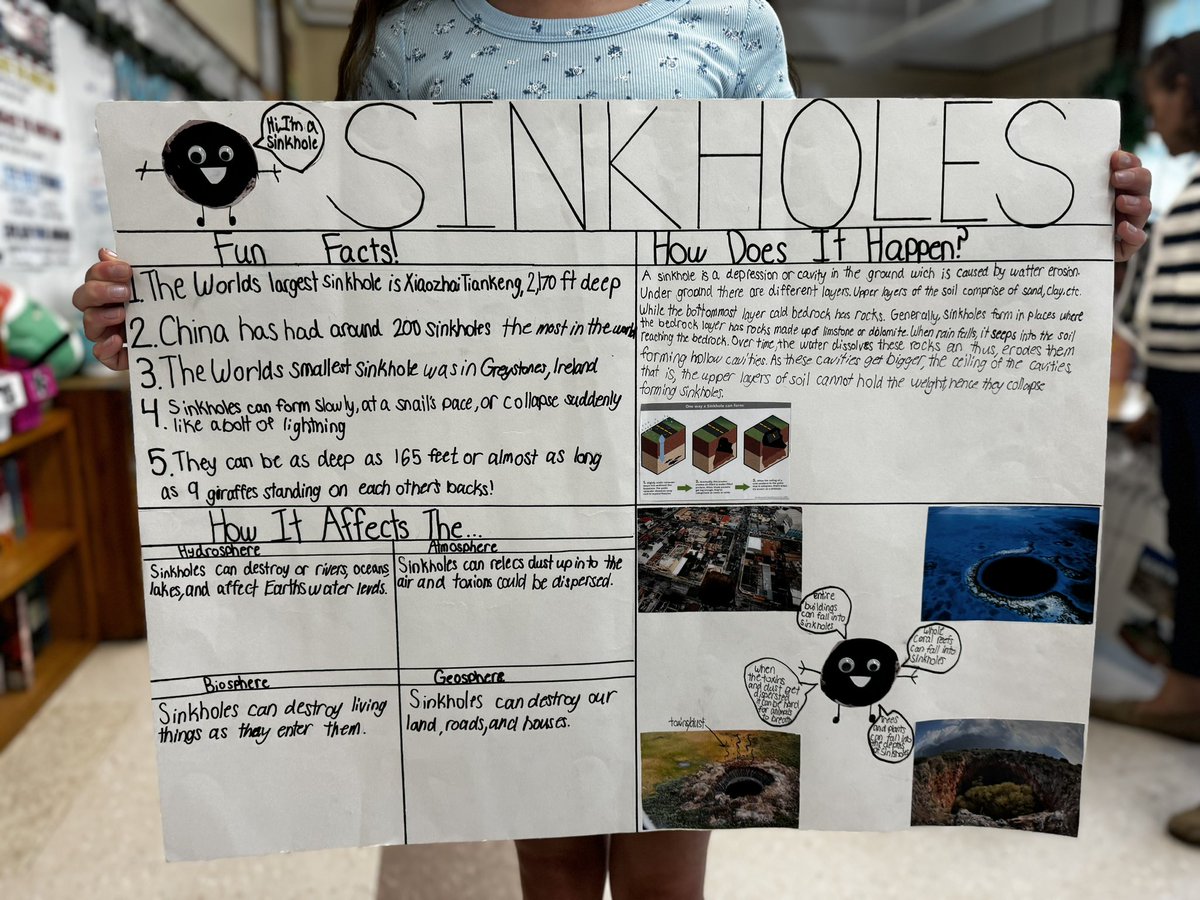 Hi, I'm a
Sinkhole
SINKHOLES
Fun Facts!
1. The Worlds largest Sinkhole is Xiaozhai Tiankeng, 2,170 ft deep
2. China has had around 200 sinkholes the most in the world
3. The Worlds smallest Sinkhole was in Greystones, Ireland
4. Sinkholes can form slowly, at a snail's pace, or collapse suddenly
like a bolt of lightning
5. They can be as deep as 165 feet or almost as long
as 9 giraffes standing on each other's backs!
How Does It Happen?
A sinkhole is a depression or cavity in the ground wich is caused by watter erosion.
Under ground there are different layers. Upper layers of the soil comprise of sand, clay, etc.
While the bottommost layer cald bedrock has rocks. Generally, Sinkholes form in places where
the bedrock layer has rocks made up of limstone or dolomite. When rain falls, it seeps into the soil
reaching the bedrock. Over time, the water dissolves these rocks an thus, erodes them
forming hollow cavities. As these cavities get bigger, the ceiling of the cavities
that is, the upper layers of soil cannot hold the weight, hence they collapse
forming Sinkholes.
One way a Sinkhole can form:
How It Affects The...
Hydrosphere
Sinkholes can destroy or rivers, oceans
lakes, and affect Earths water levels.
Atmosphere
Sinkholes can relecs dust up into the
air and toxions could be dispersed.
Biosphere
Sinkholes can destroy living
things as they enter them.
Geosphere
Sinkholes can destroy our
land, roads, and houses.
entire
buildings
can fall into
sinkholes
whole
Coral reefs
can fall into
sinkholes
when
the toxins
and dust get
dispersed
it can be hard
for animals
to breath
trees
and plants
can fall into
the depths
of sinkholes